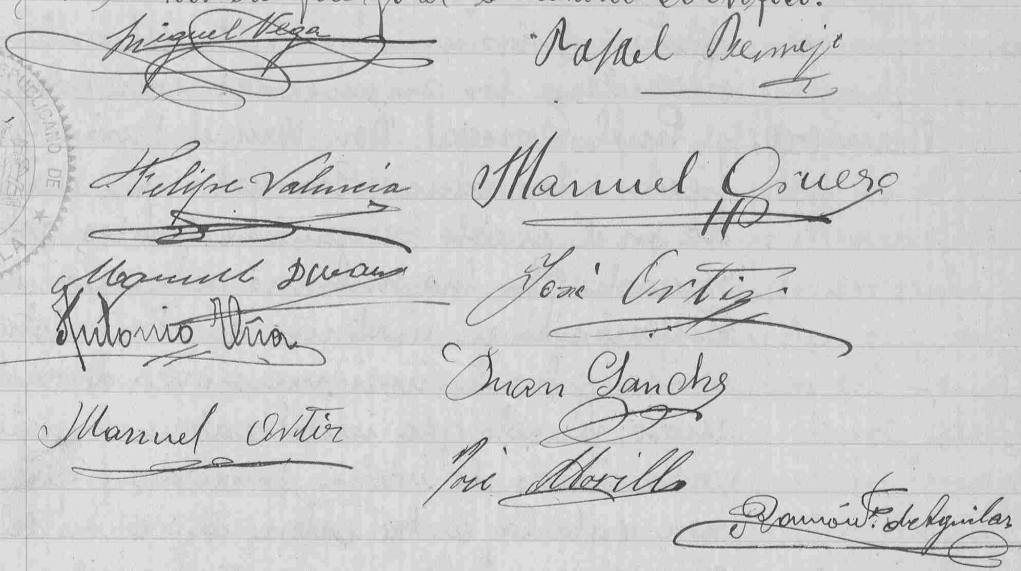 Miguel Vega
Rafael Bermejo
Felipe Valencia
Manuel
Manuel Duran
José Ortiz
Antonio Viña
Juan Sanche
Manuel Ortiz
José Morillo
Ramón F. de Aguilar
UBLICANO DE